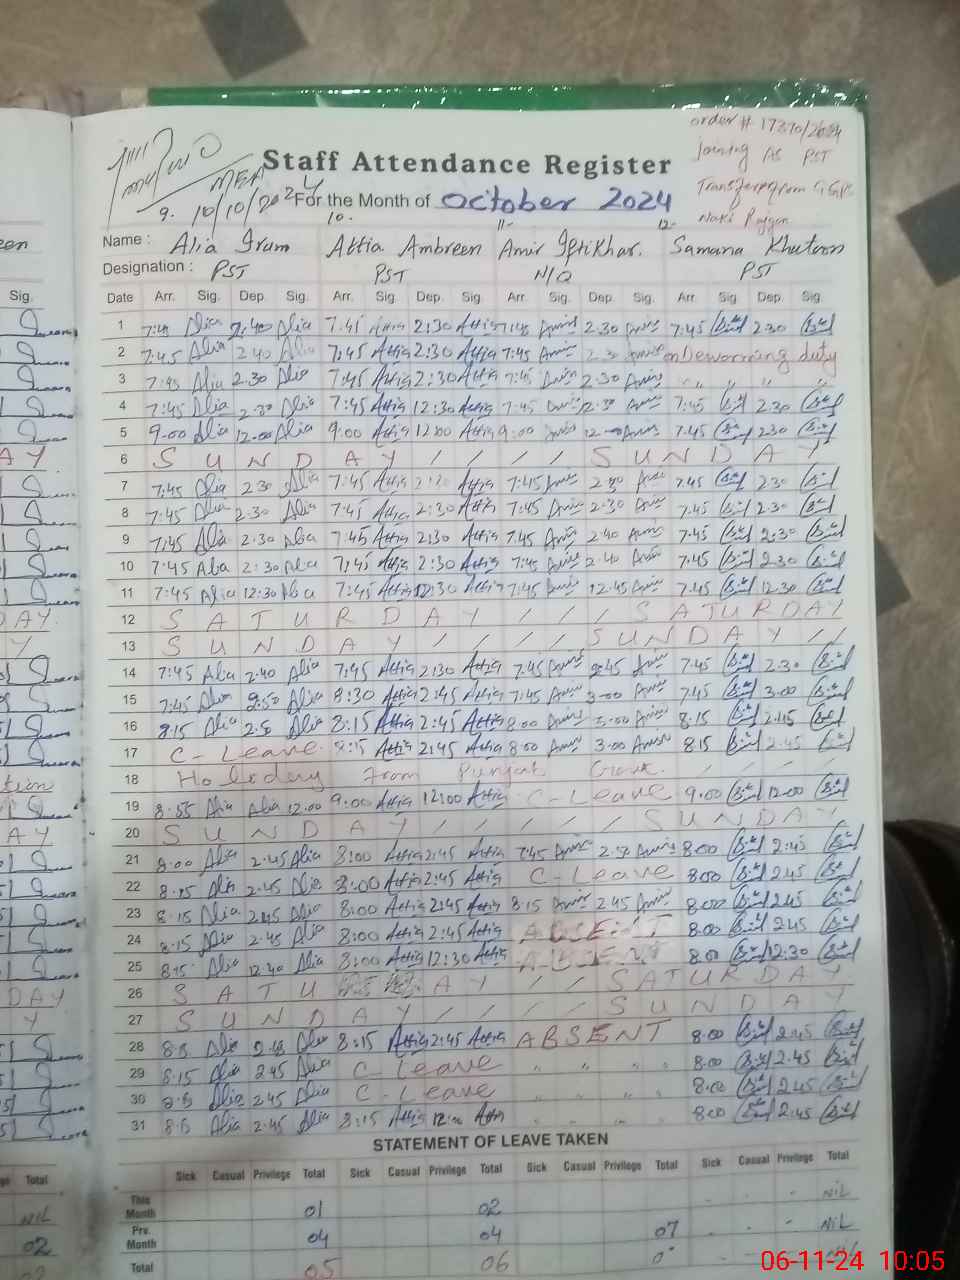 order # 17370/2024
joining As PST
Transfer from GGPS
Staff Attendance Register
MEA
10/10/2024
For the Month of October 2024
9. 10- 11- 12-
Name : Alia Irum Attia Ambreen Amir Iftikhar. Samana Khatoon
Designation : PST PST N/Q PST
Date Arr. Sig. Dep. Sig. Arr. Sig. Dep. Sig. Arr. Sig. Dep. Sig. Arr. Sig. Dep. Sig.
1 7:45 Alia 2:40 Alia 7:45 Attia 2:30 Attia 7:45 Amir 2.30 Amir 7:45 2:30
2 7:45 Alia 2:40 Alia 7:45 Attia 2:30 Attia 7:45 Amir 2.30 Amir on Deworming duty
3 7:45 Alia 2.30 Alia 7:45 Attia 2:30 Attia 7:45 Amir 2.30 Amir " " " "
4 7:45 Alia 2:30 Alia 7:45 Attia 12:30 Attia 7:45 Amir 12.30 Amir 7:45 2.30
5 9.00 Alia 12.00 Alia 9:00 Attia 12:00 Attia 9:00 Amir 12.00 Amir 7.45 2.30
6 S U N D A Y / / / / S U N D A Y
7 7:45 Alia 2:30 Alia 7:45 Attia Attia 7:45 Amir Amir 7.45 2:30
8 7:45 Alia 2.30 Alia 7:45 Attia 2:30 Attia 7:45 Amir 2.30 Amir 7:45 2.30
9 7:45 Alia 2.30 Alia 7:45 Attia 2:30 Attia 7:45 Amir 2.40 Amir 7:45 2:30
10 7:45 Alia 2:30 Alia 7:45 Attia 2:30 Attia 7:45 Amir 2.40 Amir 7:45 2.30
11 7:45 Alia 12:30 Alia 7:45 Attia 12:30 Attia 7:45 Amir 12.45 Amir 7:45 12.30
12 S A T U R D A Y / / / S A T U R D A Y
13 S U N D A Y / / / / S U N D A Y / /
14 7:45 Alia 2.40 Alia 7:45 Attia 2:30 Attia 7:45 Amir 2:45 Amir 7:45 2:30
15 7:45 Alia 2:50 Alia 8:30 Attia 2:45 Attia 7:45 Amir 3.00 Amir 7:45 3.00
16 8:15 Alia Alia 8:15 Attia 2:45 Attia 8:00 Amir 3.00 Amir 8:15 2:45
17 C - Leave. 8:15 Attia 2:45 Attia 8:00 Amir 3.00 Amir 8:15 2.45
18 Holiday From Punjab Govt.
19 8:55 Alia Alia 12.00 9:00 Attia 12:00 Attia C - Leave 9:00 12:00
20 S U N D A Y / / / / / S U N D A Y
21 8:00 Alia 2.45 Alia 8:00 Attia 2:45 Attia 7:45 Amir Amir 8:00 2:45
22 8:15 Alia 2.45 Alia 8:00 Attia 2:45 Attia C - Leave 8:00 2.45
23 8:15 Alia 2.45 Alia 8:00 Attia 2:45 Attia 8:15 Amir 2.45 Amir 8:00 2.45
24 8:15 Alia 2.45 Alia 8:00 Attia 2:45 Attia ABSENT 8.00 2.45
25 8:15 Alia 12.30 Alia 8:00 Attia 12:30 Attia ABSENT 8.00 12:30
26 S A T U A Y / / / S A T U R D A Y
27 S U N D A Y / / / / S U N D A Y
28 Alia 2.45 Alia 8:15 Attia 2:45 Attia ABSENT 8.00 2:45
29 8:15 Alia 2.45 Alia C - Leave " " " " 8:00 2.45
30 Alia 2.45 Alia C - Leave " " " " 8:00 2.45
31 Alia 2.45 Alia 8:15 Attia Attia " " " " 8:00 2.45
STATEMENT OF LEAVE TAKEN
Sick Casual Privilege Total Sick Casual Privilege Total Sick Casual Privilege Total Sick Casual Privilege Total
This Month 01 02 - - - NiL
Pre. Month 04 04 07 - - - NiL
Total 05 06
Sig.
AY
DAY
Y
AY
DAY
Y
Total
NiL
02
06-11-24 10:05